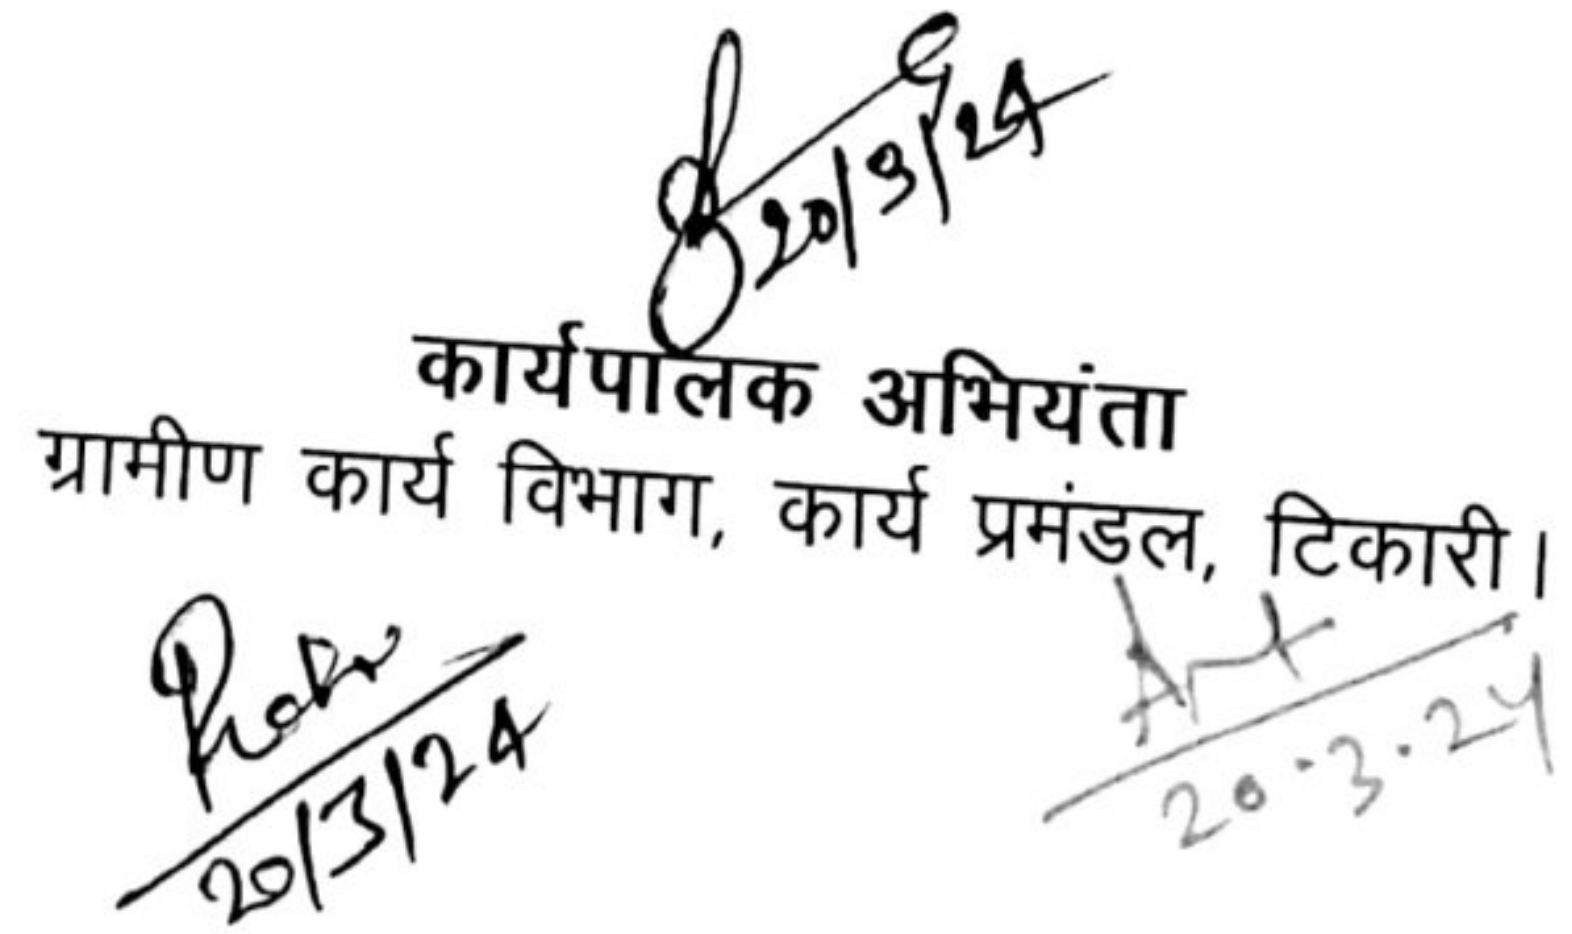 20/3/24
कार्यपालक अभियंता
ग्रामीण कार्य विभाग, कार्य प्रमंडल, टिकारी।
20/3/24
20.3.24